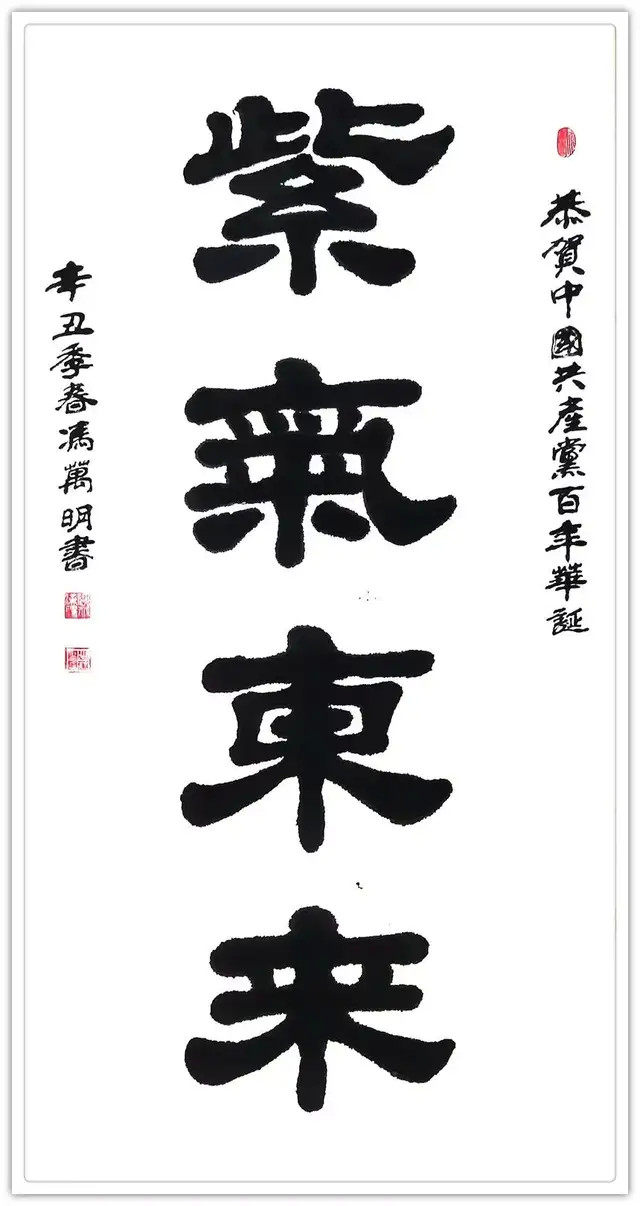 恭賀中國共產黨百年華誕
紫氣東来
辛丑季春馮萬明書